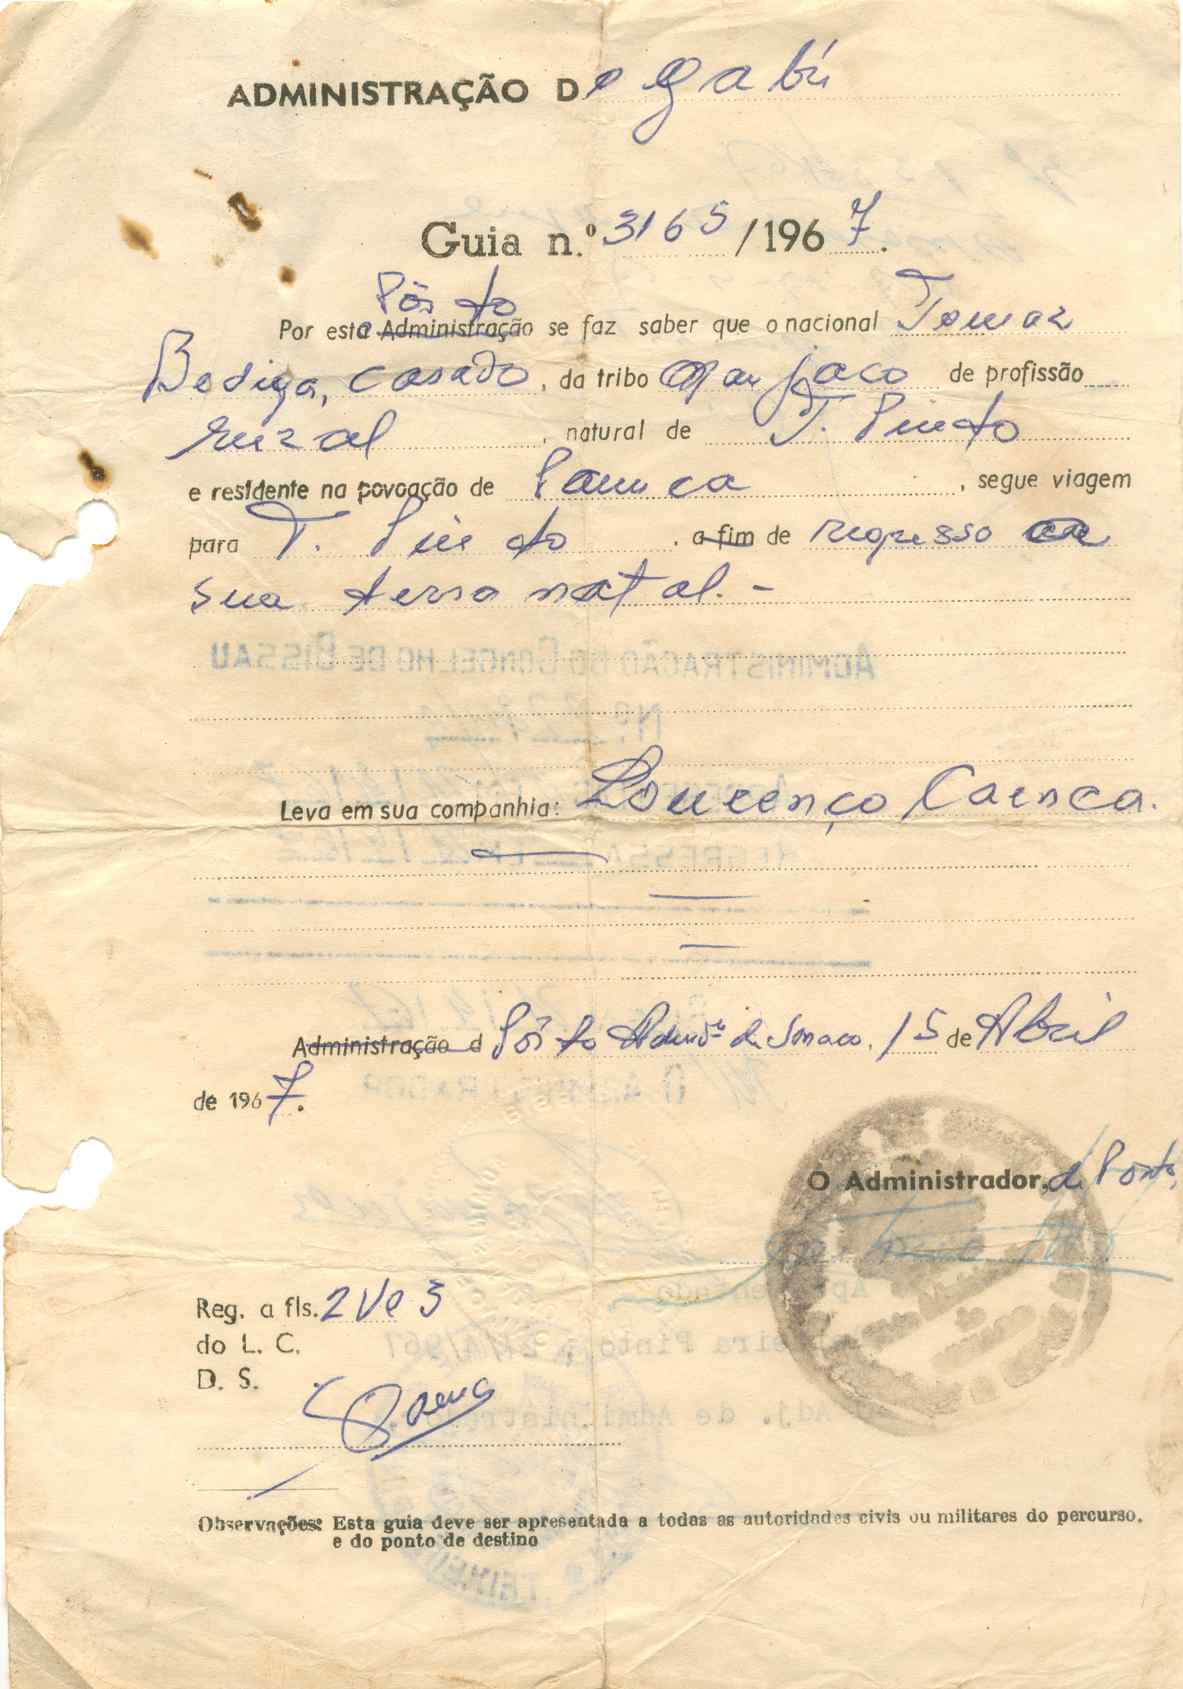 ADMINISTRAÇÃO De Gabú
Guia n.º 3165/1967.
Pôsto
Por este Administração se faz saber que o nacional Tomaz
Bodiga, casado, da tribo Manjaco de profissão
rural, natural de T. Pinto
e residente na povoação de Pamuca, segue viagem
para T. Pinto. a fim de regresso a
sua terra natal. -
ADMINISTRAÇÃO DO CONCELHO DE BISSAU
Leva em sua companhia: Lourenço Caenca.
Administração d Pôsto Admº de Sonaco, 15 de Abril
de 1967.
O ADMINISTRADOR
O Administrador, de Posto,
Reg. a fls. 2 V e 3
do L. C.
D. S.
Observações: Esta guia deve ser apresentada a todas as autoridades civis ou militares do percurso.
e do ponto de destino